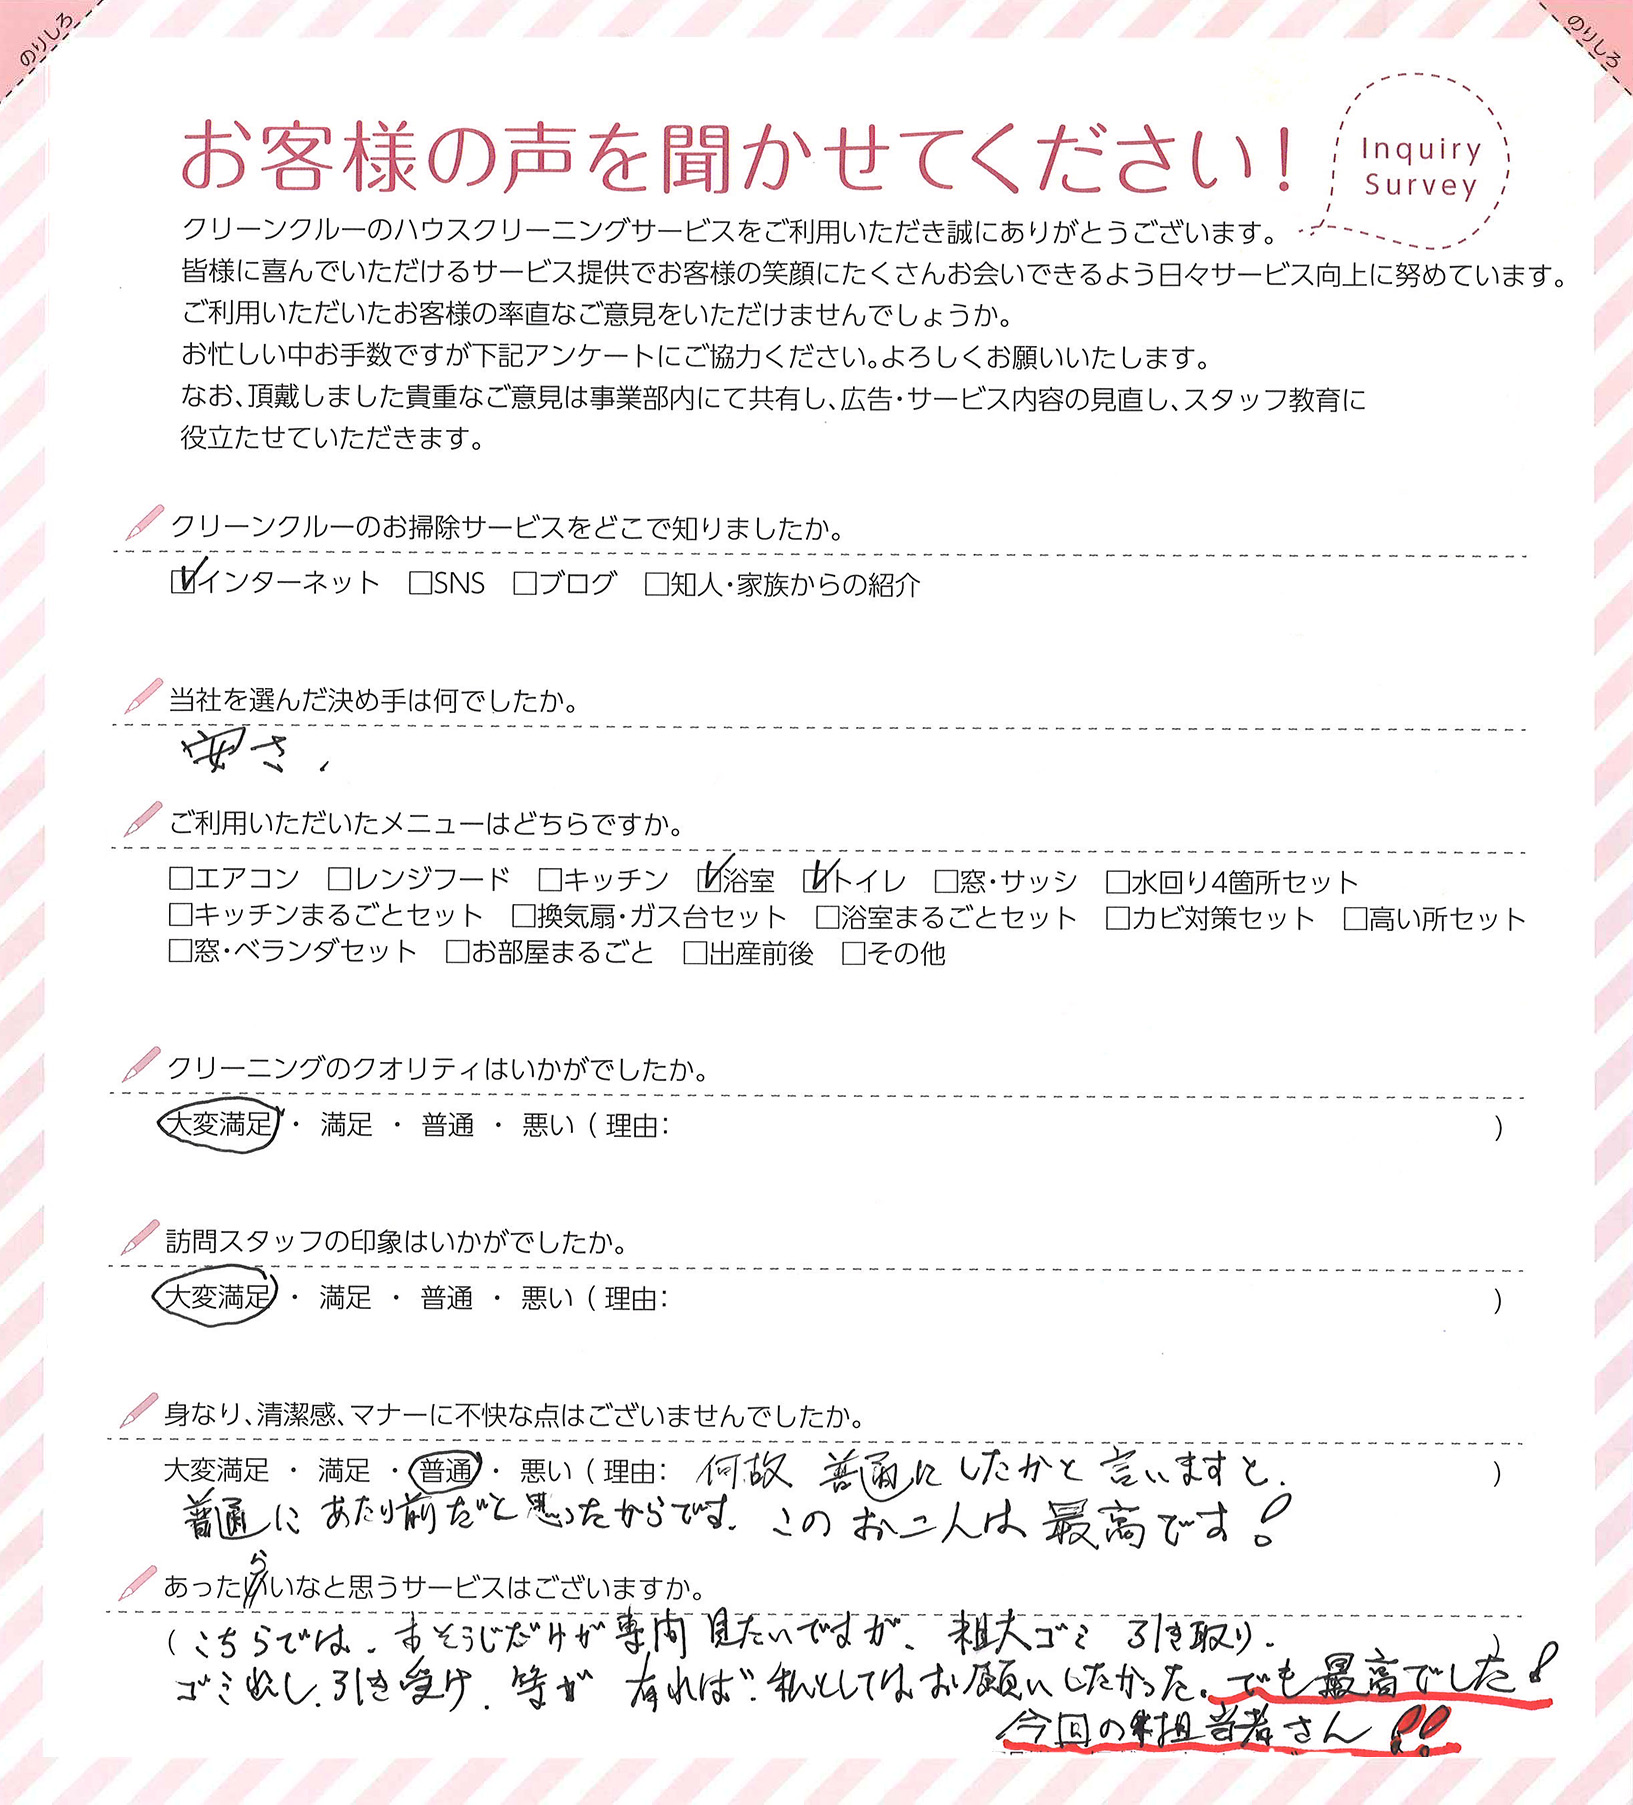 のりしろ
のりしろ
お客様の声を聞かせてください!
Inquiry
Survey
クリーンクルーのハウスクリーニングサービスをご利用いただき誠にありがとうございます。
皆様に喜んでいただけるサービス提供でお客様の笑顔にたくさんお会いできるよう日々サービス向上に努めています。
ご利用いただいたお客様の率直なご意見をいただけませんでしょうか。
お忙しい中お手数ですが下記アンケートにご協力ください。よろしくお願いいたします。
なお、頂戴しました貴重なご意見は事業部内にて共有し、広告・サービス内容の見直し、スタッフ教育に
役立たせていただきます。
クリーンクルーのお掃除サービスをどこで知りましたか。
☑インターネット □SNS □ブログ □知人・家族からの紹介
当社を選んだ決め手は何でしたか。
安さ、
ご利用いただいたメニューはどちらですか。
□エアコン □レンジフード □キッチン ☑浴室 ☑トイレ □窓・サッシ □水回り4箇所セット
□キッチンまるごとセット □換気扇・ガス台セット □浴室まるごとセット □カビ対策セット □高い所セット
□窓・ベランダセット □お部屋まるごと □出産前後 □その他
クリーニングのクオリティはいかがでしたか。
大変満足 ・ 満足 ・ 普通 ・ 悪い ( 理由: )
訪問スタッフの印象はいかがでしたか。
大変満足 ・ 満足 ・ 普通 ・ 悪い ( 理由: )
身なり、清潔感、マナーに不快な点はございませんでしたか。
大変満足 ・ 満足 ・ 普通 ・ 悪い ( 理由: 何故 普通にしたかと言いますと、 )
普通に あたり前だと思ったからです。このお二人は 最高です!
あったらいいなと思うサービスはございますか。
( こちらでは、おそうじだけが専門見たいですが、粗大ゴミ 引き取り、 )
ゴミ出し、引き受け、等が 有れば、私としてはお願いしたかった。でも最高でした!
今回の担当者さん!!